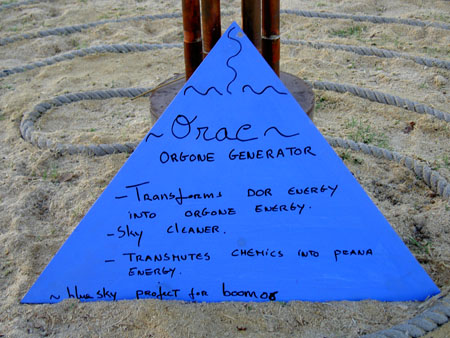 ~ Orac ~
ORGONE GENERATOR
- Transforms DOR ENERGY
INTO ORGONE ENERGY.
- Sky CLEANER.
- TRANSMUTES CHEMICS INTO PRANA
ENERGY.
~ blue sky project for boom 08